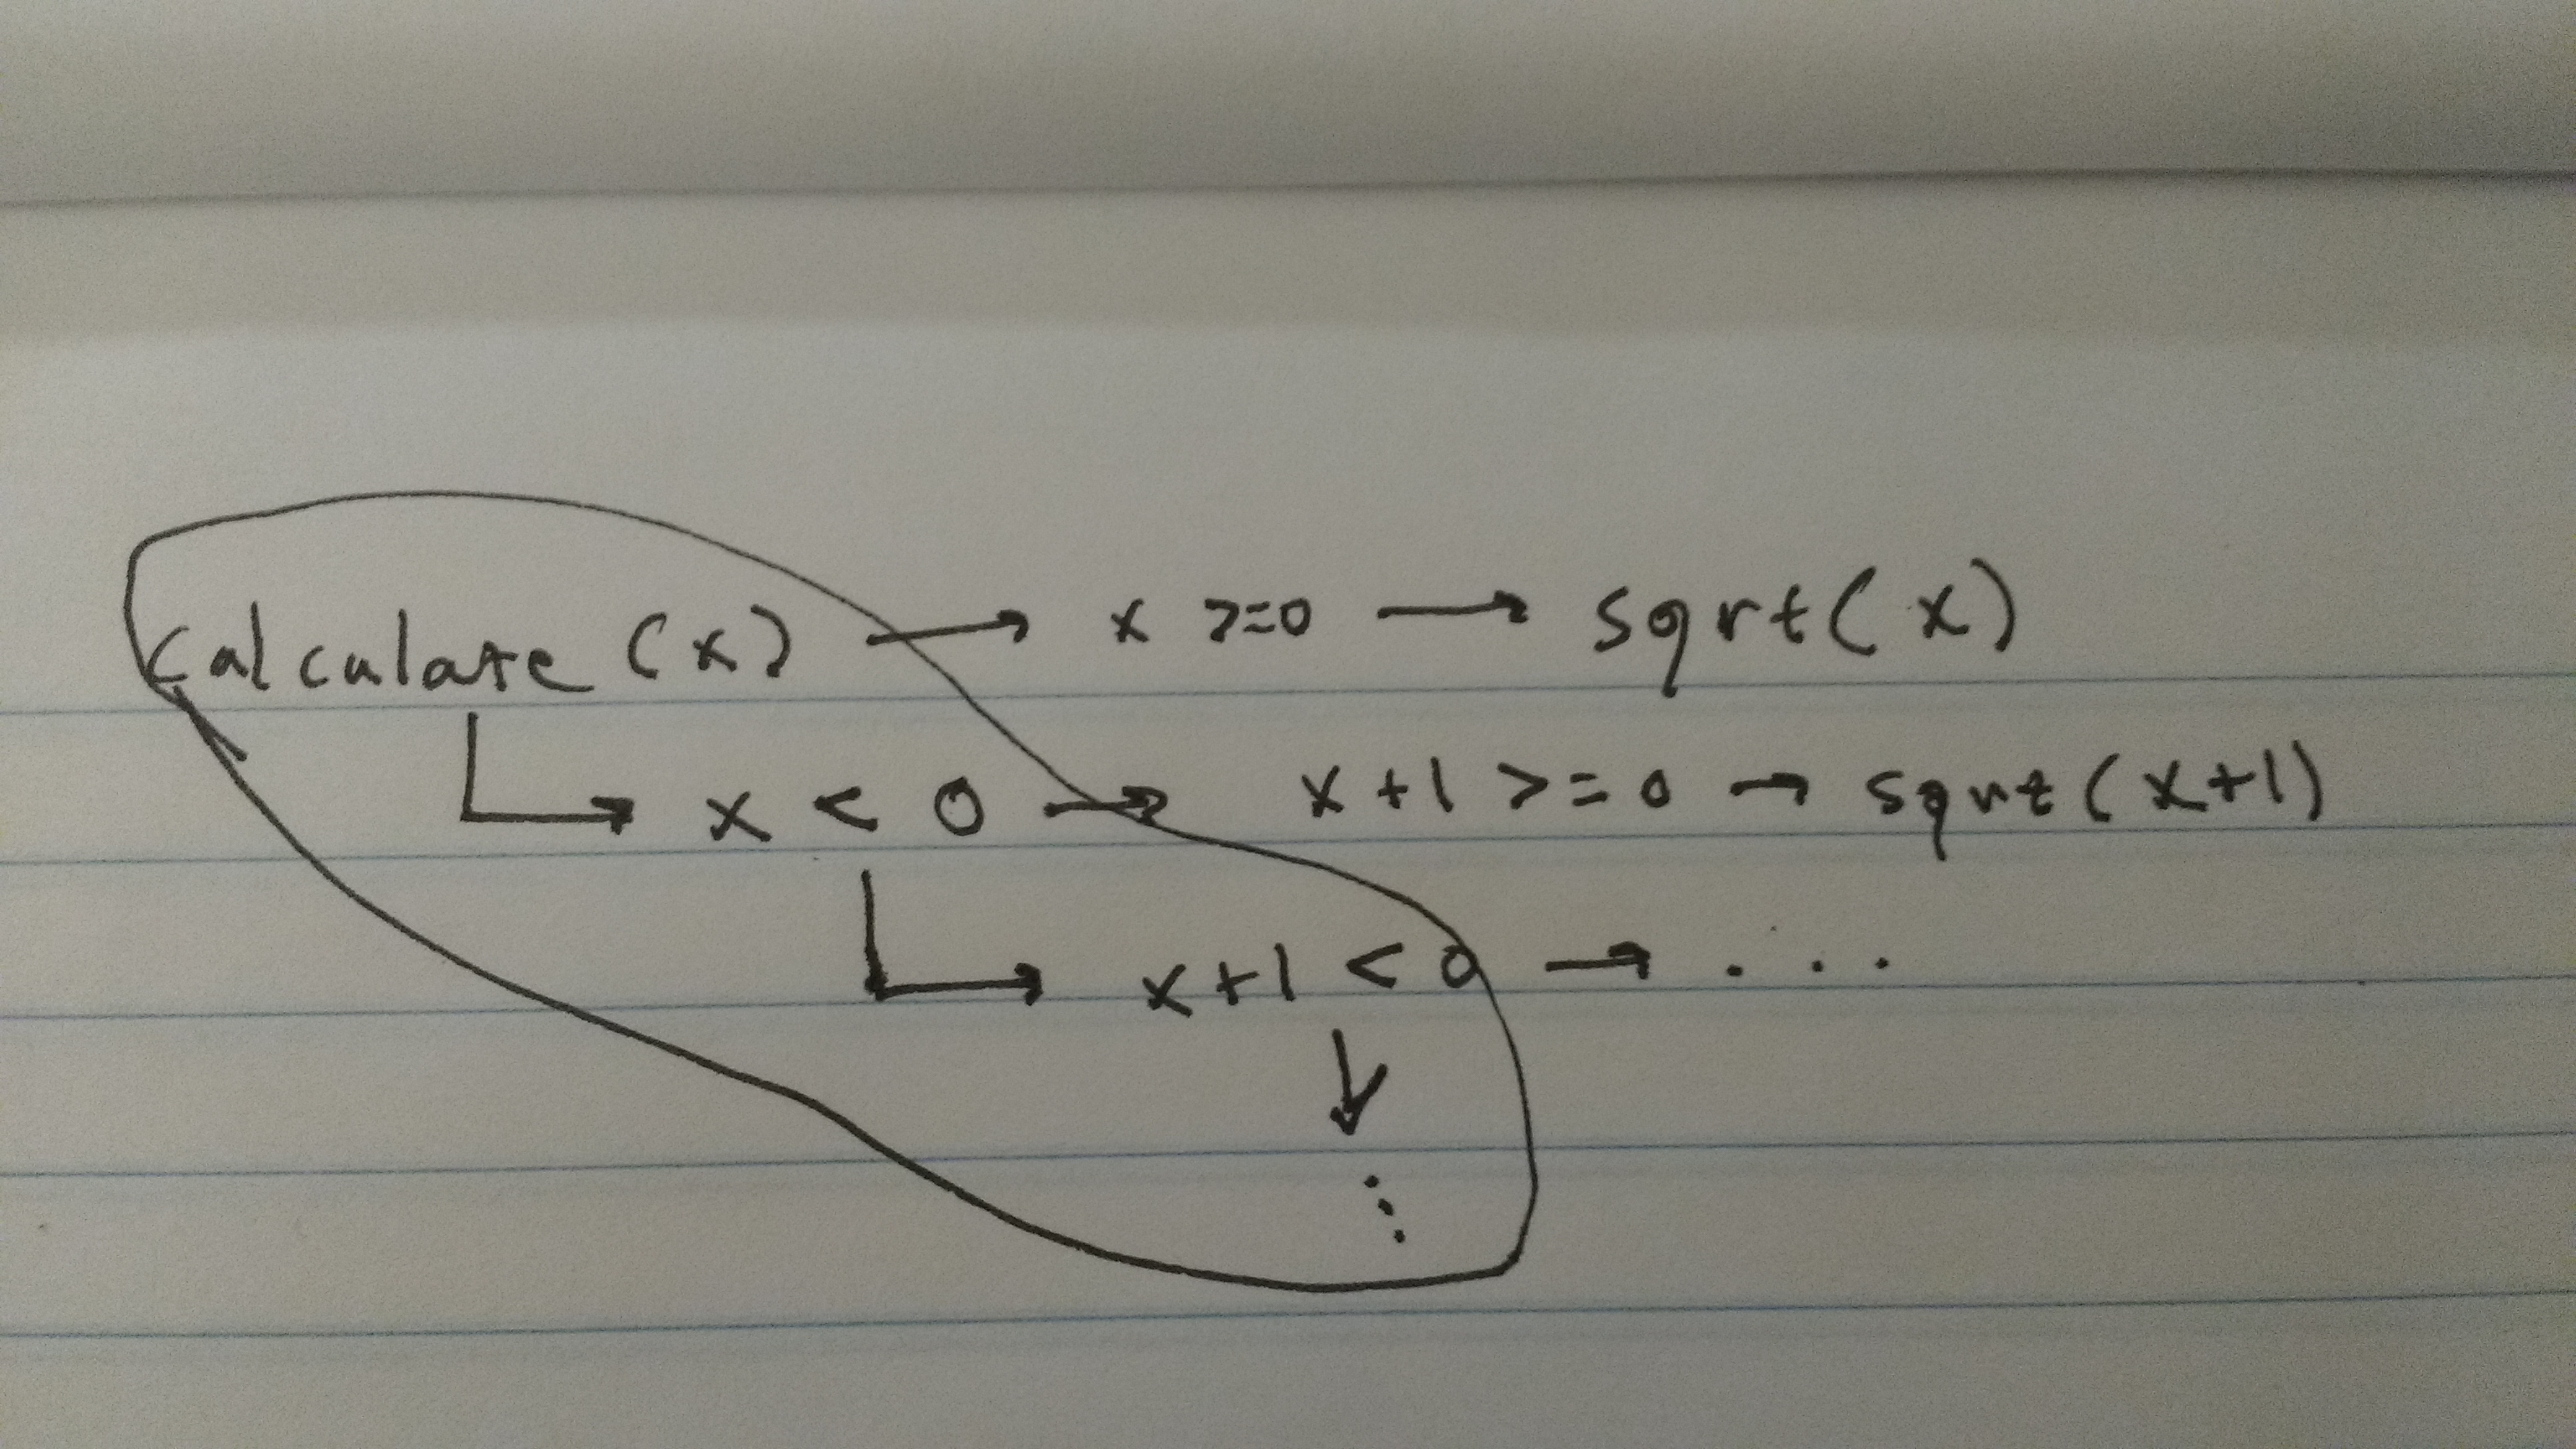 calculate (x) → x >=0 → sqrt(x)
↳ x < 0 → x+1 >=0 → sqrt(x+1)
↳ x+1 < 0 → ...
↓
⋮